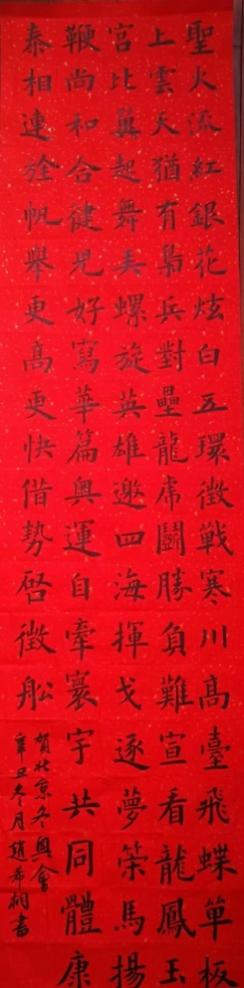 聖火流紅銀花炫白五環徵戰寒川高臺飛蝶單板
上雲天猶有梟兵對壘龍虎鬪勝負難宣看龍鳳玉
宮比翼起舞美螺旋英雄邀四海揮戈逐夢策馬揚
鞭尚和合健兒好寫華篇奧運自牽寰宇共同體康
泰相連於帆舉更高更快借勢啓徵船
賀北京冬奧會
辛丑冬月趙希桐書